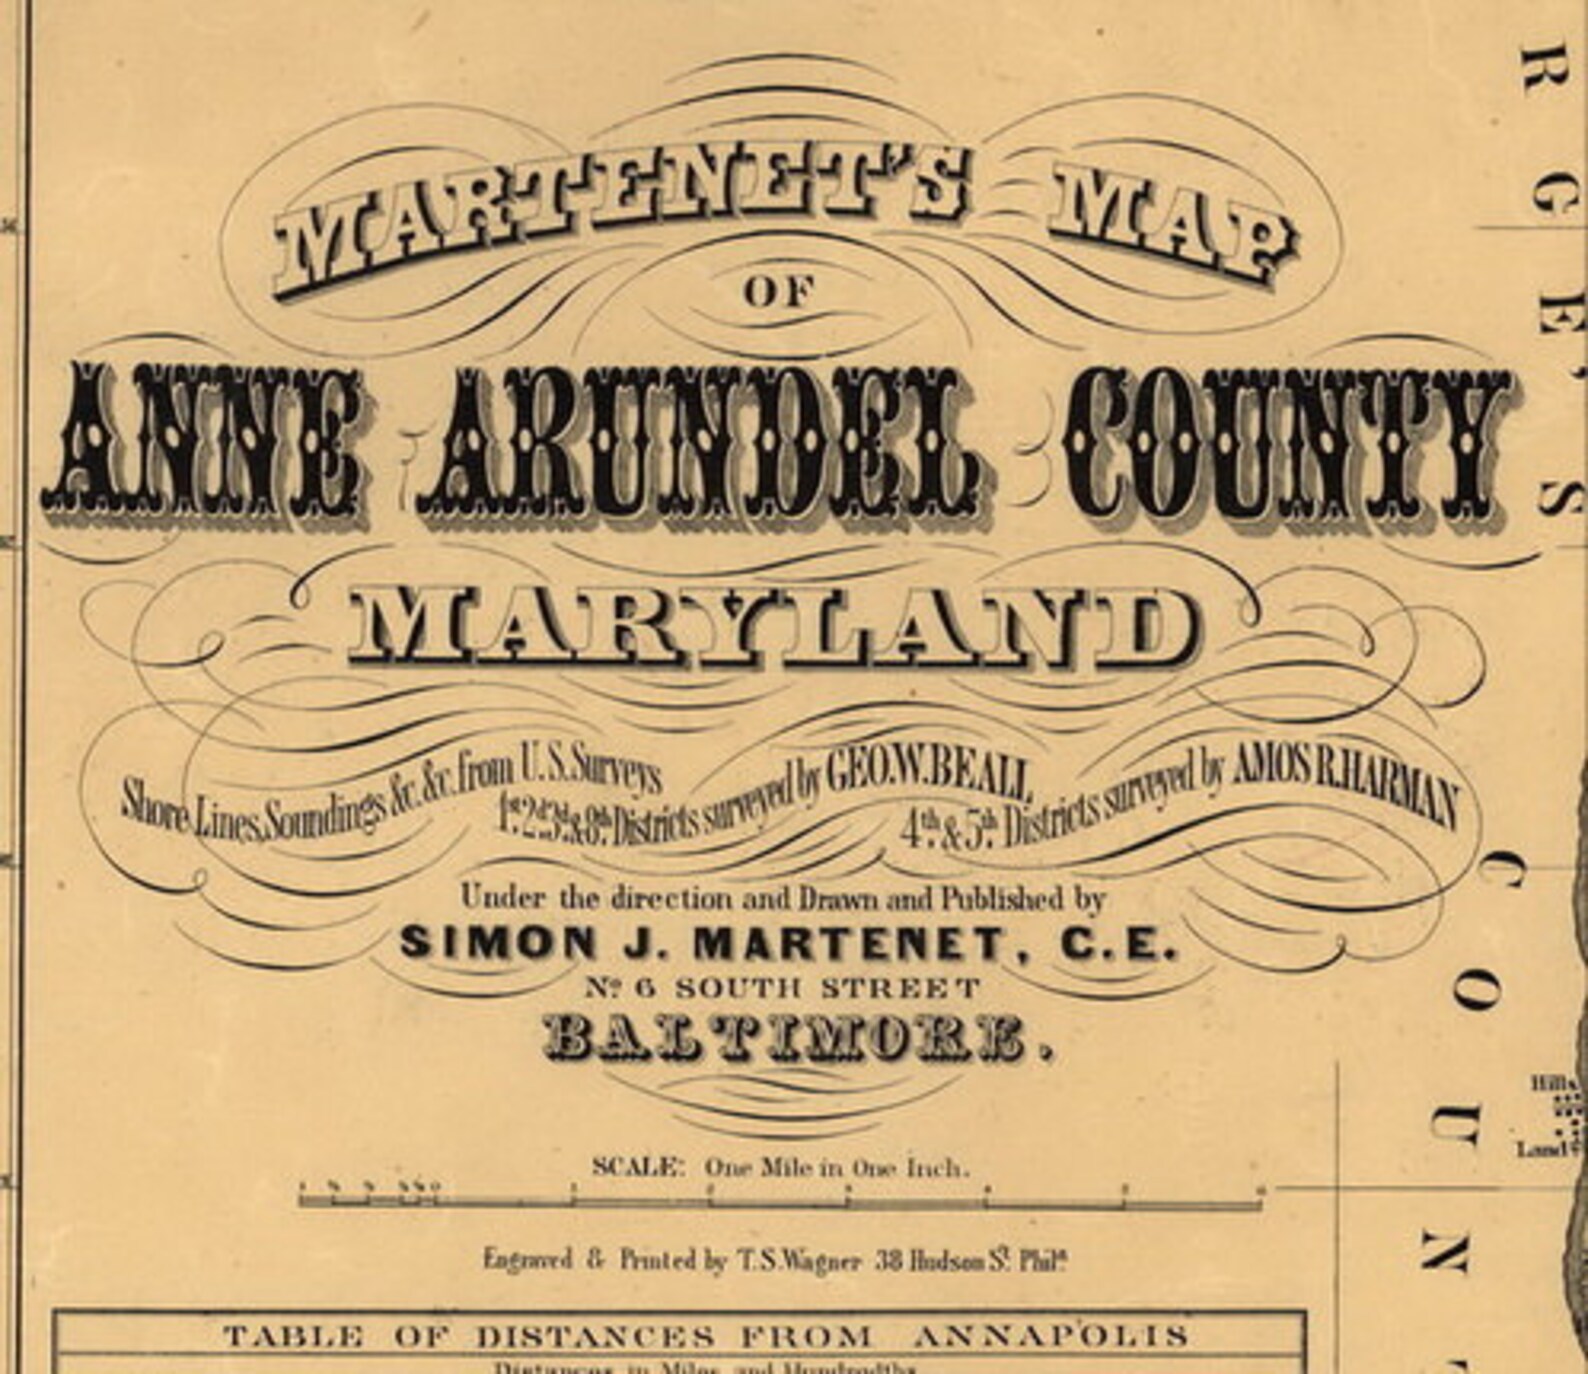 MARTENET'S MAP
OF
ANNE ARUNDEL COUNTY
MARYLAND
Shore Lines, Soundings &c. &c. from U.S. Surveys
1st. 2d. 3d. & 8th. Districts surveyed by GEO. W. BEALL
4th. & 5th. Districts surveyed by AMOS R. HARMAN
Under the direction and Drawn and Published by
SIMON J. MARTENET, C.E.
No. 6 SOUTH STREET
BALTIMORE.
SCALE: One Mile in One Inch.
Engraved & Printed by T.S. Wagner 38 Hudson St. Phila.
TABLE OF DISTANCES FROM ANNAPOLIS
Distances in Miles and Hundredths
RGE'S COUN
Hills
Land